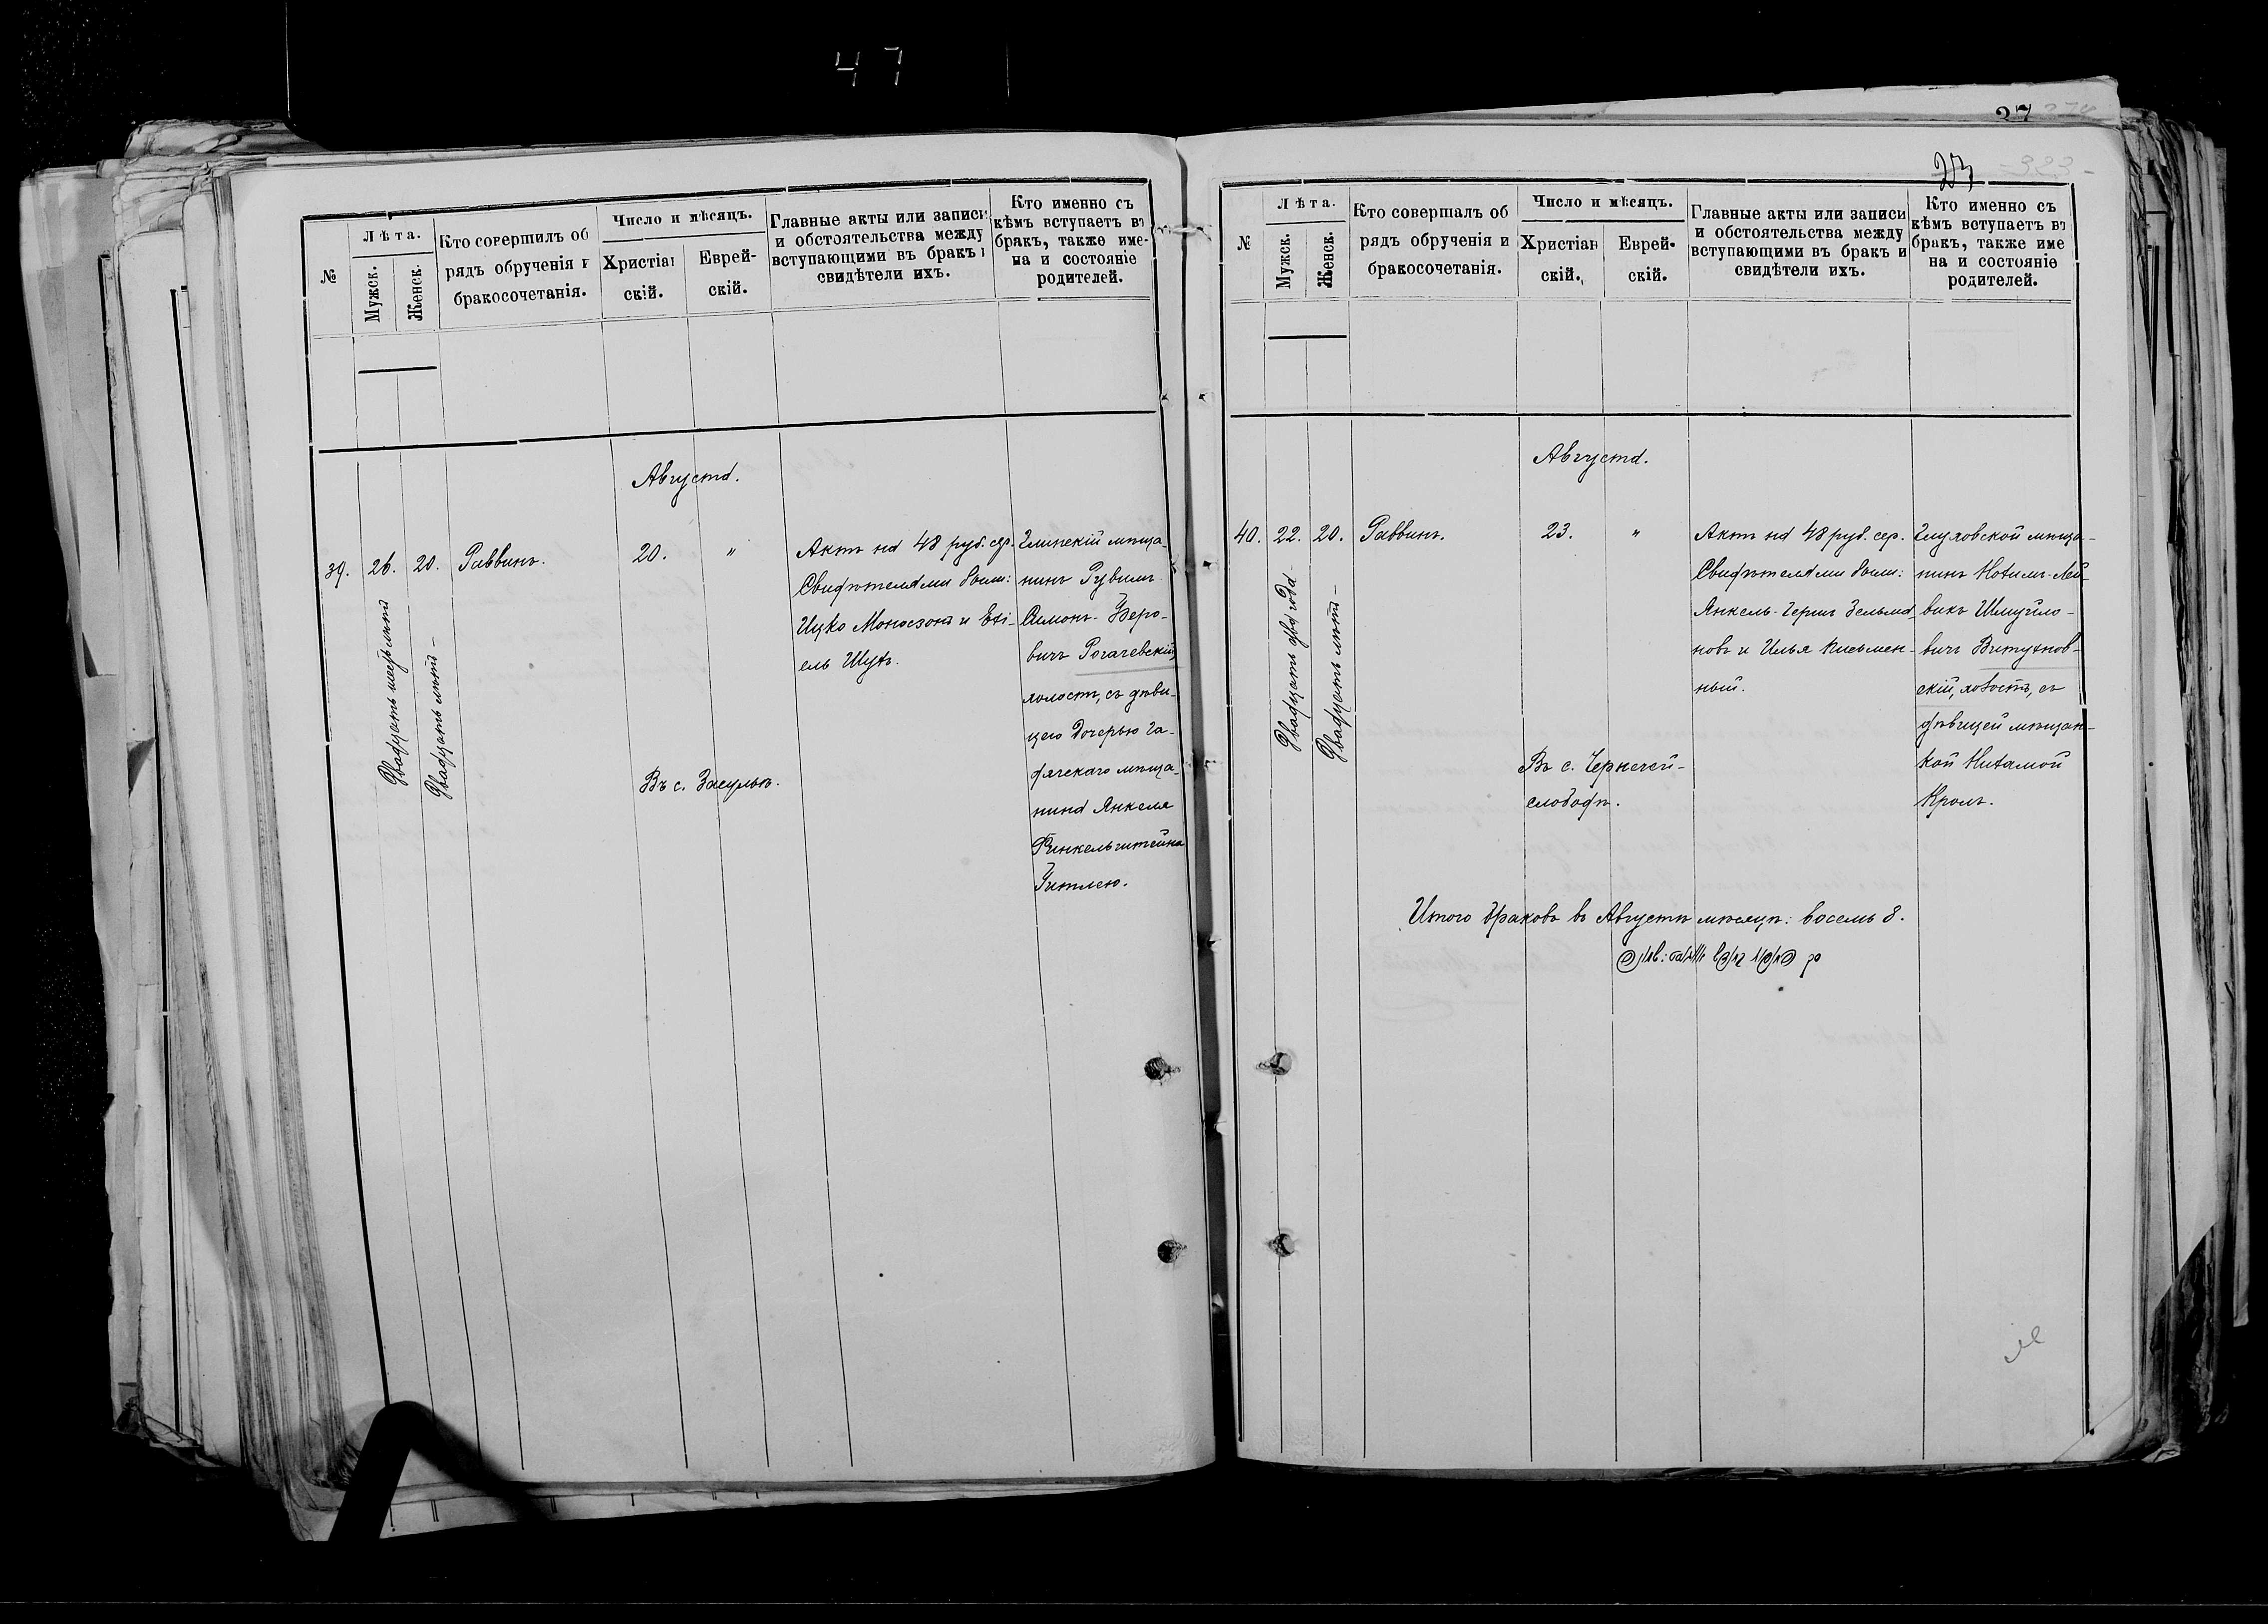 47
№
Лѣта.
Мужск.
Женск.
Кто совершилъ об
рядъ обрученія и
бракосочетанія.
Число и мѣсяцъ.
Христіан
скій.
Еврей-
скій.
Главные акты или записи
и обстоятельства между
вступающими въ бракъ и
свидѣтели ихъ.
Кто именно съ
кѣмъ вступаетъ въ
бракъ, также име-
на и состояніе
родителей.
Августа.
39.
26.
Двадцать шесть лѣтъ
20.
Двадцать лѣтъ -
Раввинъ.
20.
"
Въ с. Засульи.
Актъ на 48 руб. сер.
Свидѣтелями были:
Ицко Моносзонъ и Ехі-
ель Шубъ.
Глинскій мѣща-
нинъ Рувимъ-
Симонъ Беро-
вичъ Рогачевскій,
холостъ, съ дѣви-
цею дочерью Га-
дячскаго мѣща-
нина Янкеля
Финкельштейна
Гитлею.
37
274
23
-323-
№
Лѣта.
Мужск.
Женск.
Кто совершалъ об
рядъ обрученія и
бракосочетанія.
Число и мѣсяцъ.
Христіан
скій.
Еврей-
скій.
Главные акты или записи
и обстоятельства между
вступающими въ бракъ и
свидѣтели ихъ.
Кто именно съ
кѣмъ вступаетъ въ
бракъ, также име
на и состояніе
родителей.
Августа.
40.
22.
Двадцать два года -
20.
Двадцать лѣтъ -
Раввинъ.
23.
"
Въ с. Чернечей-
слободѣ.
Актъ на 48 руб. сер.
Свидѣтелями были:
Янкель-Гершъ Зельма-
новъ и Илья Письмен-
ный.
Глуховской мѣща-
нинъ Нохимъ-Лей-
викъ Шмуйло-
вичъ Витухнов-
скій, холостъ, съ
дѣвицей мѣщан-
кой Нихамой
Кролъ.
Итого браковъ въ Августѣ мѣсяцѣ: восемь 8.